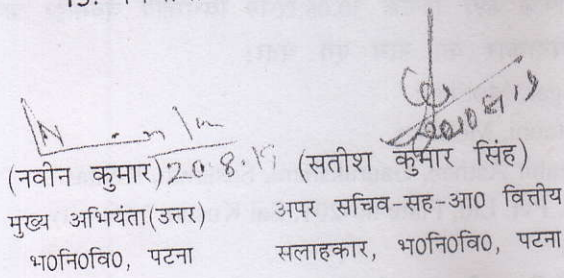 (नवीन कुमार) 20.8.19
मुख्य अभियंता(उत्तर)
भ०नि०वि०, पटना
(सतीश कुमार सिंह)
अपर सचिव-सह-आ० वित्तीय
सलाहकार, भ०नि०वि०, पटना